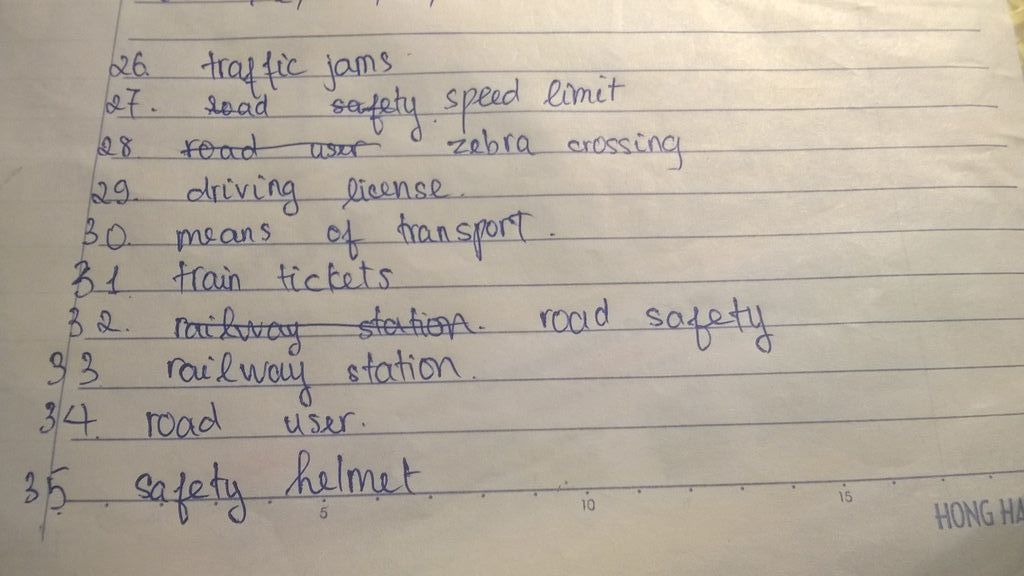 26. traffic jams
27. road safety speed limit
28. road user zebra crossing
29. driving license.
30. means of transport.
31. train tickets
32. railway station. road safety
33 railway station.
34. road user.
35. safety helmet
5 10 15
HONG HA